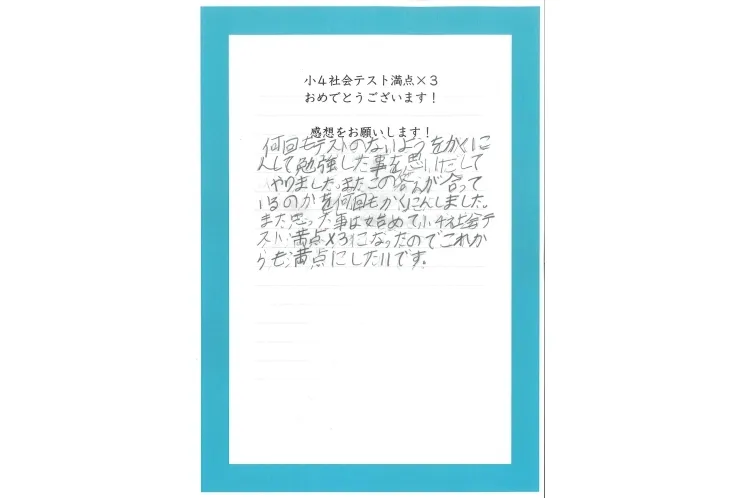 小4社会テスト満点×3
おめでとうございます!
感想をお願いします!
何回もテストのないようをかくに
んして勉強した事を思いだして
やりました。またこの答えが合って
いるのかを何回もかくにんしました。
また思った事は始めて小4社会テ
スト満点×3になったのでこれか
らも満点にしたいです。